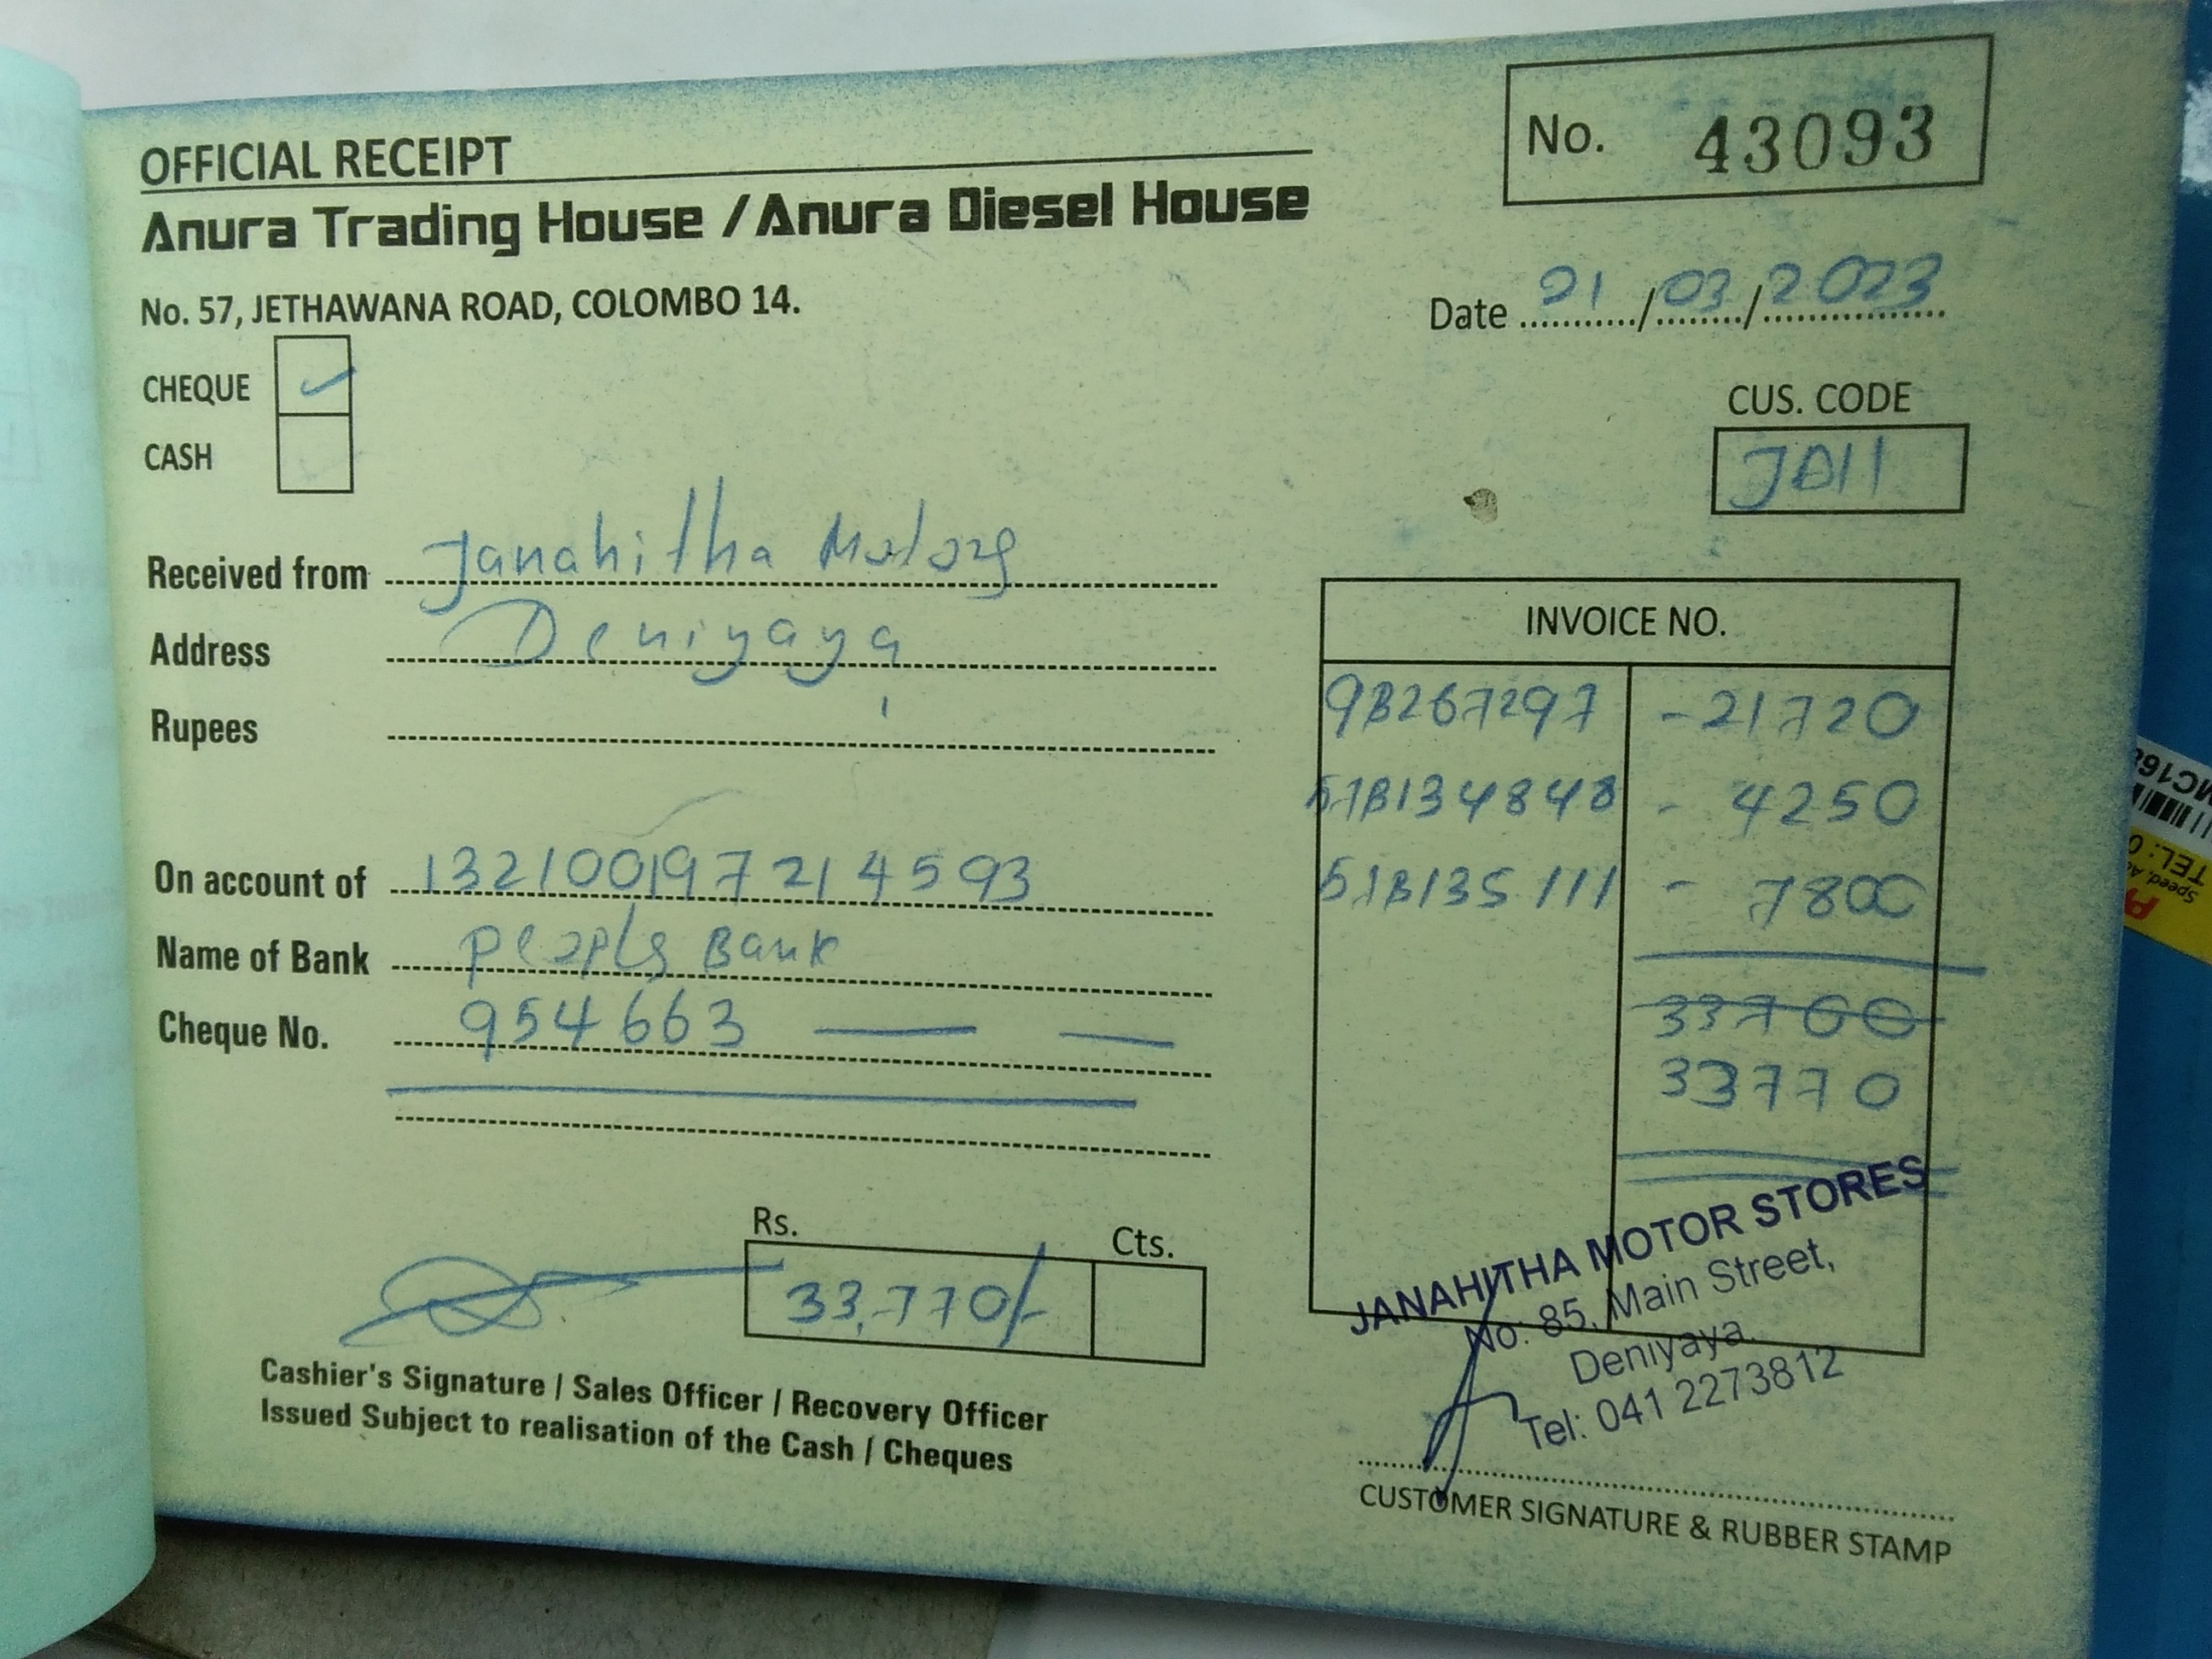 OFFICIAL RECEIPT
No. 43093
Anura Trading House / Anura Diesel House
No. 57, JETHAWANA ROAD, COLOMBO 14.
Date 21/03/2023
CHEQUE ✓
CASH
CUS. CODE
JD11
Received from Janahitha Motors
Address Deniyaya
Rupees
On account of 132100197214593
Name of Bank Peoples Bank
Cheque No. 954663 — —
INVOICE NO.
9B267297 - 21720
51B134848 - 4250
51B135111 - 7800
33700
33770
Rs. Cts.
33,770/-
Cashier's Signature / Sales Officer / Recovery Officer
Issued Subject to realisation of the Cash / Cheques
JANAHITHA MOTOR STORES
No: 85, Main Street,
Deniyaya.
Tel: 041 2273812
CUSTOMER SIGNATURE & RUBBER STAMP
MC168
TEL: 0